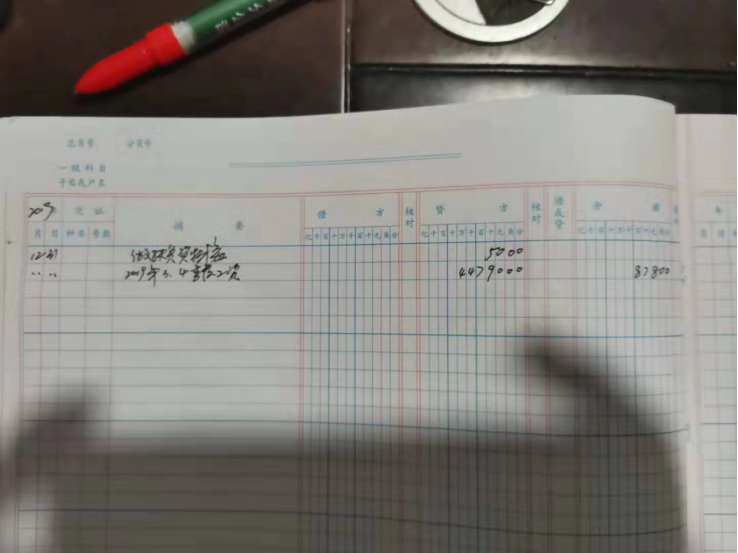 总页号 分页号
一级科目
子目或户名
2019年 凭证 摘要 借方 核对 贷方 核对 借或贷 余 年
月 日 种类 号数 亿千百十万千百十元角分 亿千百十万千百十元角分 亿千百十万千百十元角分 月 日
12 31 5000
〃 〃 2019年3.4季度工资 4479000 87800